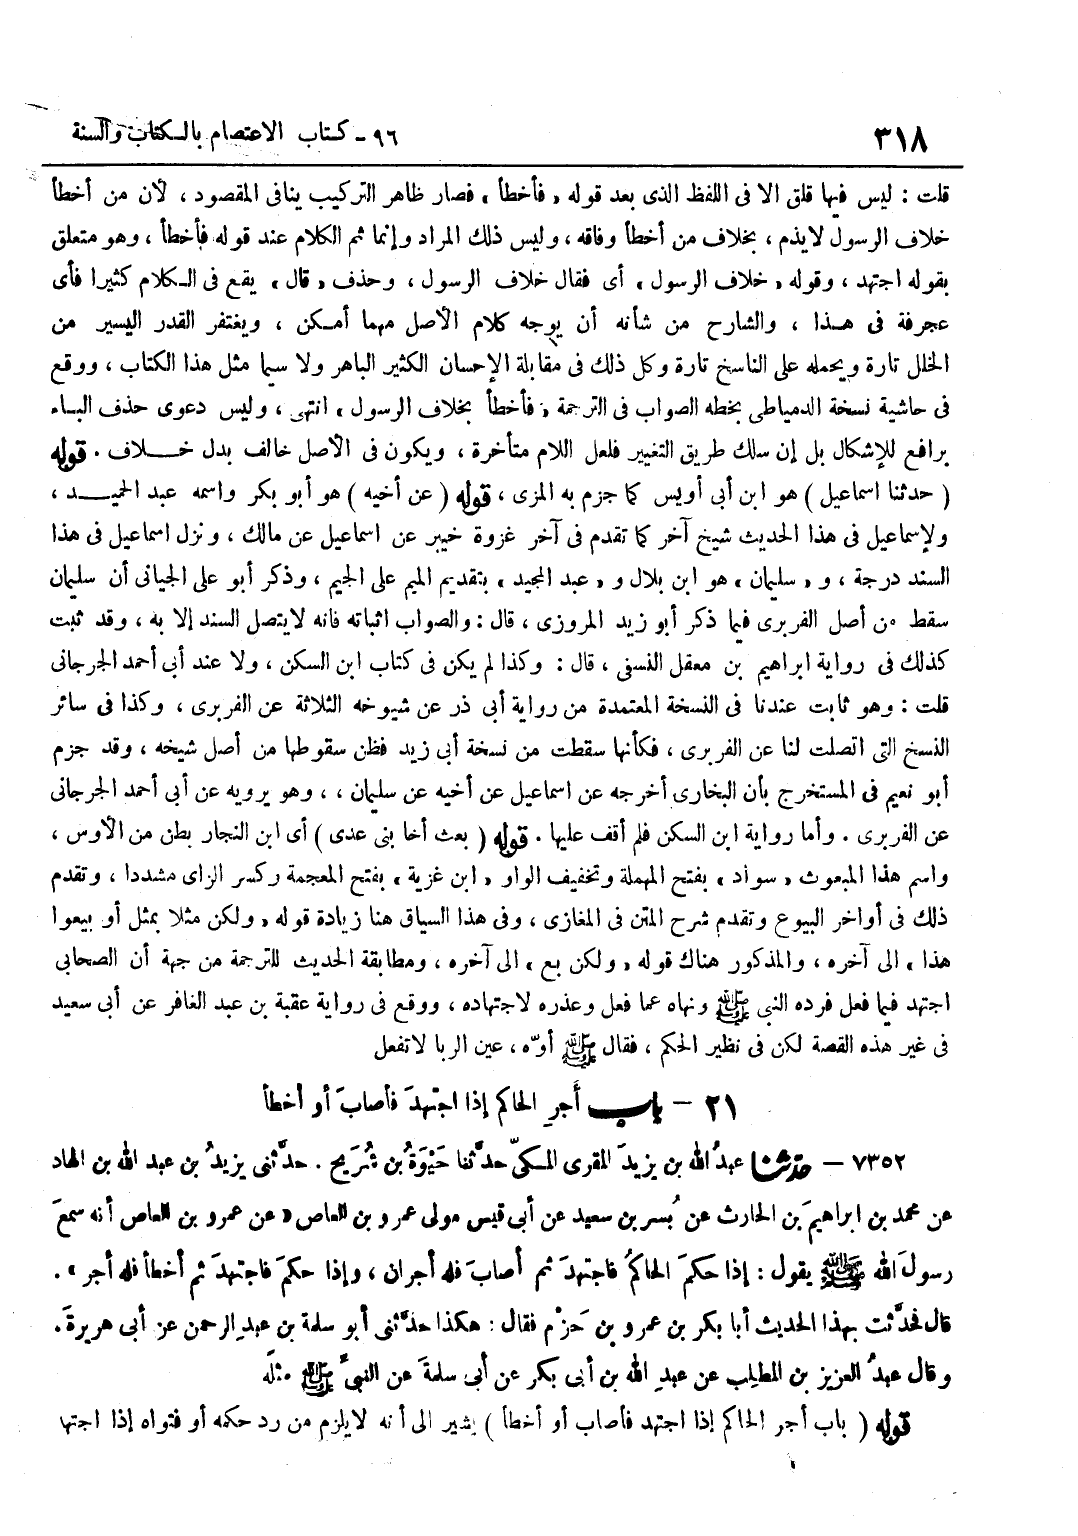 ٣١٨
٩٦ - كتاب الاعتصام بالكتاب والسنة
قلت : ليس فيها قلق الا فى اللفظ الذى بعد قوله « فأخطأ » فصار ظاهر التركيب ينافى المقصود ، لأن من أخطأ
خلاف الرسول لايذم ، بخلاف من أخطأ وفاقه ، وليس ذلك المراد وإنما ثم الكلام عند قوله فأخطأ ، وهو متعلق
بقوله اجتهد ، وقوله « خلاف الرسول » أى فقال خلاف الرسول ، وحذف « قال » يقع فى الكلام كثيرا فأى
عجرفة فى هذا ، والشارح من شأنه أن يوجه كلام الأصل مهما أمكن ، ويغتفر القدر اليسير من
الخلل تارة ويحمله على الناسخ تارة وكل ذلك فى مقابلة الإحسان الكثير الباهر ولا سيما مثل هذا الكتاب ، ووقع
فى حاشية نسخة الدمياطى بخطه الصواب فى الترجمة « فأخطأ بخلاف الرسول » انتهى ، وليس دعوى حذف الباء
برافع للإشكال بل إن سلك طريق التغيير فلعل اللام متأخرة ، ويكون فى الأصل خالف بدل خلاف . قوله
( حدثنا اسماعيل ) هو ابن أبى أويس كما جزم به المزى ، قوله ( عن أخيه ) هو أبو بكر واسمه عبد الحميد ،
ولإسماعيل فى هذا الحديث شيخ آخر كما تقدم فى آخر غزوة خيبر عن اسماعيل عن مالك ، ونزل اسماعيل فى هذا
السند درجة ، و « سليمان » هو ابن بلال و « عبد المجيد » بتقديم الميم على الجيم ، وذكر أبو على الجيانى أن سليمان
سقط من أصل الفربرى فيما ذكر أبو زيد المروزى ، قال : والصواب اثباته فانه لايتصل السند إلا به ، وقد ثبت
كذلك فى رواية ابراهيم بن معقل النسفى ، قال : وكذا لم يكن فى كتاب ابن السكن ، ولا عند أبى أحمد الجرجانى
قلت : وهو ثابت عندنا فى النسخة المعتمدة من رواية أبى ذر عن شيوخه الثلاثة عن الفربرى ، وكذا فى سائر
النسخ التى اتصلت لنا عن الفربرى ، فكأنها سقطت من نسخة أبى زيد فظن سقوطها من أصل شيخه ، وقد جزم
أبو نعيم فى المستخرج بأن البخارى أخرجه عن اسماعيل عن أخيه عن سليمان ، ، وهو يرويه عن أبى أحمد الجرجانى
عن الفربرى . وأما رواية ابن السكن فلم أقف عليها . قوله ( بعث أخا بنى عدى ) أى ابن النجار بطن من الأوس ،
واسم هذا المبعوث « سواد » بفتح المهملة وتخفيف الواو « ابن غزية » بفتح المعجمة وكسر الزاى مشددا ، وتقدم
ذلك فى أواخر البيوع وتقدم شرح المتن فى المغازى ، وفى هذا السياق هنا زيادة قوله « ولكن مثلا بمثل أو بيعوا
هذا » الى آخره ، والمذكور هناك قوله « ولكن بع » الى آخره ، ومطابقة الحديث للترجمة من جهة أن الصحابى
اجتهد فيما فعل فرده النبى ﷺ ونهاه عما فعل وعذره لاجتهاده ، ووقع فى رواية عقبة بن عبد الغافر عن أبى سعيد
فى غير هذه القصة لكن فى نظير الحكم ، فقال ﷺ أوّه ، عين الربا لاتفعل
٢١ - باب أَجرِ الحاكم إذا اجتهدَ فأصابَ أو أخطأ
٧٣٥٢ - حدثنا عبدُ الله بن يزيدَ المقرى المكىّ حدَّثنا حَيْوَةُ بن شُرَيح . حدَّثنى يزيدُ بن عبد الله بن الهاد
عن محمد بن ابراهيمَ بن الحارث عن بُسر بن سعيد عن أبى قيس مولى عمرو بن العاص « عن عمرو بن العاص أنه سمعَ
رسولَ الله ﷺ يقول : إذا حكمَ الحاكمُ فاجتهدَ ثم أصابَ فله أجران ، وإذا حكمَ فاجتهدَ ثم أخطأ فله أجر » .
قال فحدَّثت بهذا الحديث أبا بكر بن عمرو بن حَزْم فقال : هكذا حدَّثنى أبو سلمة بن عبد الرحمن عن أبى هريرةَ .
وقال عبدُ العزيز بن المطلب عن عبدِ الله بن أبى بكر عن أبى سلمةَ عن النبىِّ ﷺ مثلَه
قوله ( باب أجر الحاكم إذا اجتهد فأصاب أو أخطأ ) يشير الى أنه لايلزم من رد حكمه أو فتواه إذا اجتها